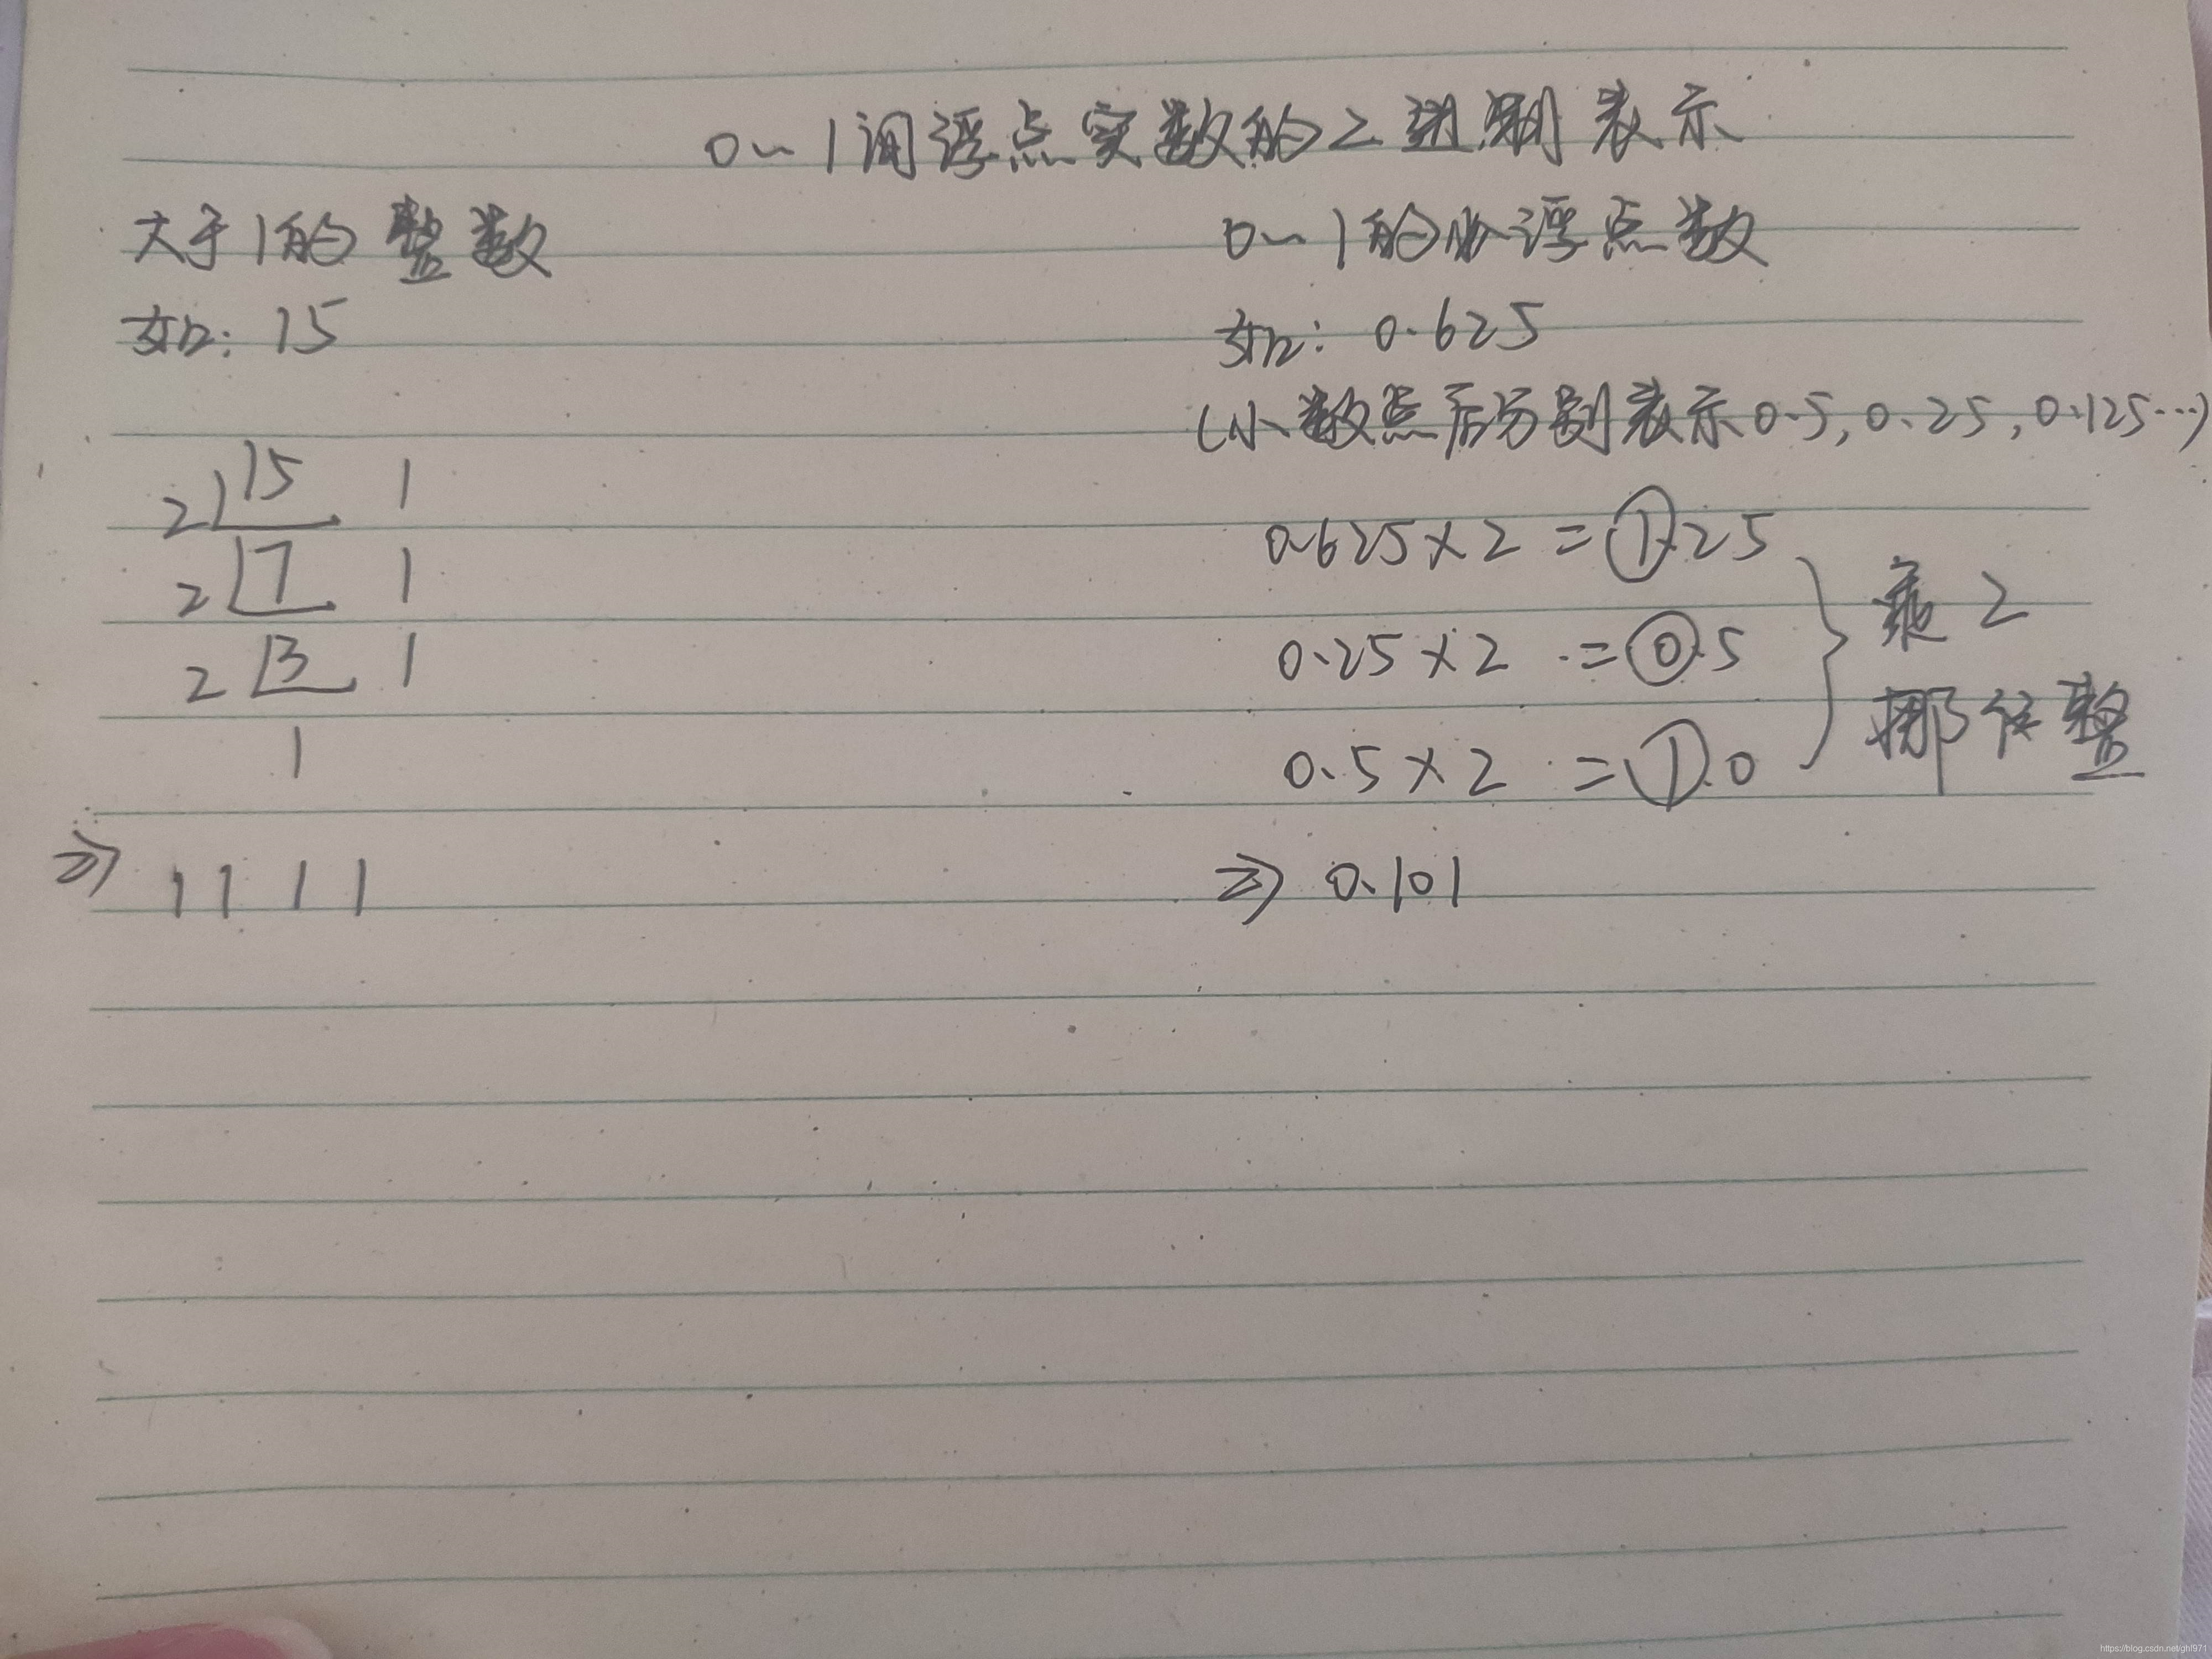 0~1间浮点实数的2进制表示
大于1的整数
如: 15
2 15 1
2 7 1
2 3 1
1
⇒ 1111
0~1的浮点数
如: 0.625
(小数点后分别表示0.5, 0.25, 0.125…)
0.625×2 = 1.25
0.25×2 = 0.5
0.5×2 = 1.0
乘2
挪位整
⇒ 0.101
https://blog.csdn.net/ghl971